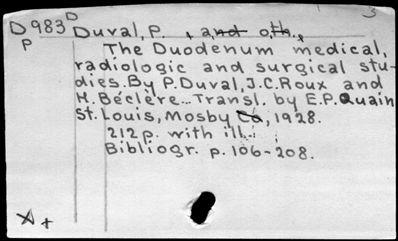 3
D983D Duval, P., and oth.,
P The Duodenum medical,
radiologic and surgical stu-
dies. By P. Duval, J.C. Roux and
H. Béclère... Transl. by E.P. Quain
St. Louis, Mosby Co, 1928.
212 p. with ill.
Bibliogr. p. 106-208.